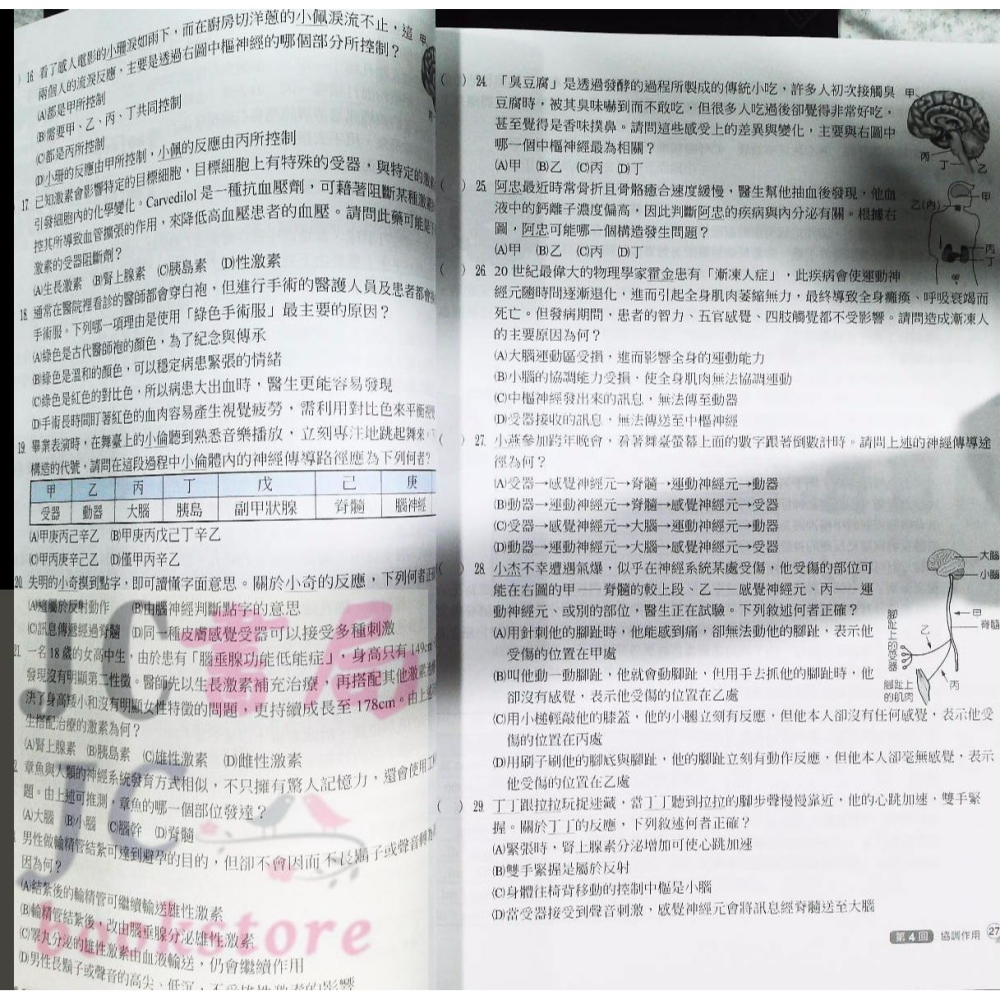 16 看了感人電影的小珊淚如雨下，而在廚房切洋蔥的小佩淚流不止，這
兩個人的流淚反應，主要是透過右圖中樞神經的哪個部分所控制？
(A)都是甲所控制
(B)需要甲、乙、丙、丁共同控制
(C)都是丙所控制
(D)小珊的反應由甲所控制，小佩的反應由丙所控制
甲
17 已知激素會影響特定的目標細胞，目標細胞上有特殊的受器，與特定的激
引發細胞內的化學變化。Carvedilol 是一種抗血壓劑，可藉著阻斷某種激
控其所導致血管擴張的作用，來降低高血壓患者的血壓。請問此藥可能是
激素的受器阻斷劑？
(A)生長激素 (B)腎上腺素 (C)胰島素 (D)性激素
18 通常在醫院裡看診的醫師都會穿白袍，但進行手術的醫護人員及患者都
手術服。下列哪一項理由是使用「綠色手術服」最主要的原因？
(A)綠色是古代醫師袍的顏色，為了紀念與傳承
(B)綠色是溫和的顏色，可以穩定病患緊張的情緒
(C)綠色是紅色的對比色，所以病患大出血時，醫生更能容易發現
(D)手術長時間盯著紅色的血肉容易產生視覺疲勞，需利用對比色來平衡
19 畢業表演時，在舞臺上的小倫聽到熟悉音樂播放，立刻專注地跳起舞來
構造的代號，請問在這段過程中小倫體內的神經傳導路徑應為下列何者？
甲 乙 丙 丁 戊 己 庚
受器 動器 大腦 胰島 副甲狀腺 脊髓 腦神經
(A)甲庚丙己辛乙 (B)甲庚丙戊己丁辛乙
(C)甲丙庚辛己乙 (D)僅甲丙辛乙
20 失明的小奇摸到點字，即可讀懂字面意思。關於小奇的反應，下列何者正
(A)這屬於反射動作 (B)由腦神經判斷點字的意思
(C)訊息傳遞經過脊髓 (D)同一種皮膚感覺受器可以接受多種刺激
21 一名 18 歲的女高中生，由於患有「腦垂腺功能低能症」，身高只有 149cm
發現沒有明顯第二性徵。醫師先以生長激素補充治療，再搭配其他激素
決了身高矮小和沒有明顯女性特徵的問題，更持續成長至 178cm。由上
生搭配治療的激素為何？
(A)腎上腺素 (B)胰島素 (C)雄性激素 (D)雌性激素
章魚與人類的神經系統發育方式相似，不只擁有驚人記憶力，還會使用工
題。由上述可推測，章魚的哪一個部位發達？
(A)大腦 (B)小腦 (C)腦幹 (D)脊髓
男性做輸精管結紮可達到避孕的目的，但卻不會因而不長鬍子或聲音轉
因為何？
(A)結紮後的輸精管可繼續輸送雄性激素
(B)輸精管結紮後，改由腦垂腺分泌雄性激素
(C)睪丸分泌的雄性激素由血液輸送，仍會繼續作用
(D)男性長鬍子或聲音的高尖、低沉，不受雄性激素的影響
JC書局
JC
bookstore
( ) 24 「臭豆腐」是透過發酵的過程所製成的傳統小吃，許多人初次接觸臭
豆腐時，被其臭味嚇到而不敢吃，但很多人吃過後卻覺得非常好吃，
甚至覺得是香味撲鼻。請問這些感受上的差異與變化，主要與右圖中
哪一個中樞神經最為相關？
(A)甲 (B)乙 (C)丙 (D)丁
甲
丙 丁 乙
( ) 25 阿忠最近時常骨折且骨骼癒合速度緩慢，醫生幫他抽血後發現，他血
液中的鈣離子濃度偏高，因此判斷阿忠的疾病與內分泌有關。根據右
圖，阿忠可能哪一個構造發生問題？
(A)甲 (B)乙 (C)丙 (D)丁
甲
乙(內)
丙
丁
( ) 26 20 世紀最偉大的物理學家霍金患有「漸凍人症」，此疾病會使運動神
經元隨時間逐漸退化，進而引起全身肌肉萎縮無力，最終導致全身癱瘓、呼吸衰竭而
死亡。但發病期間，患者的智力、五官感覺、四肢觸覺都不受影響。請問造成漸凍人
的主要原因為何？
(A)大腦運動區受損，進而影響全身的運動能力
(B)小腦的協調能力受損，使全身肌肉無法協調運動
(C)中樞神經發出來的訊息，無法傳至動器
(D)受器接收的訊息，無法傳送至中樞神經
( ) 27 小燕參加跨年晚會，看著舞臺螢幕上面的數字跟著倒數計時。請問上述的神經傳導途
徑為何？
(A)受器→感覺神經元→脊髓→運動神經元→動器
(B)動器→運動神經元→脊髓→感覺神經元→受器
(C)受器→感覺神經元→大腦→運動神經元→動器
(D)動器→運動神經元→大腦→感覺神經元→受器
( ) 28 小杰不幸遭遇氣爆，似乎在神經系統某處受傷，他受傷的部位可
能在右圖的甲——脊髓的較上段、乙——感覺神經元、丙——運
動神經元、或別的部位，醫生正在試驗。下列敘述何者正確？
(A)用針刺他的腳趾時，他能感到痛，卻無法動他的腳趾，表示他
受傷的位置在甲處
(B)叫他動一動腳趾，他就會動腳趾，但用手去抓他的腳趾時，他
卻沒有感覺，表示他受傷的位置在乙處
(C)用小槌輕敲他的膝蓋，他的小腿立刻有反應，但他本人卻沒有任何感覺，表示他受
傷的位置在丙處
(D)用刷子刷他的腳底與腳趾，他的腳趾立刻有動作反應，但他本人卻毫無感覺，表示
他受傷的位置在乙處
大腦
小腦
甲
脊髓
乙
丙
腳趾上的受器
腳趾上的肌肉
( ) 29 丁丁跟拉拉玩捉迷藏，當丁丁聽到拉拉的腳步聲慢慢靠近，他的心跳加速，雙手緊
握。關於丁丁的反應，下列敘述何者正確？
(A)緊張時，腎上腺素分泌增加可使心跳加速
(B)雙手緊握是屬於反射
(C)身體往椅背移動的控制中樞是小腦
(D)當受器接受到聲音刺激，感覺神經元會將訊息經脊髓送至大腦
第 4 回 協調作用 27